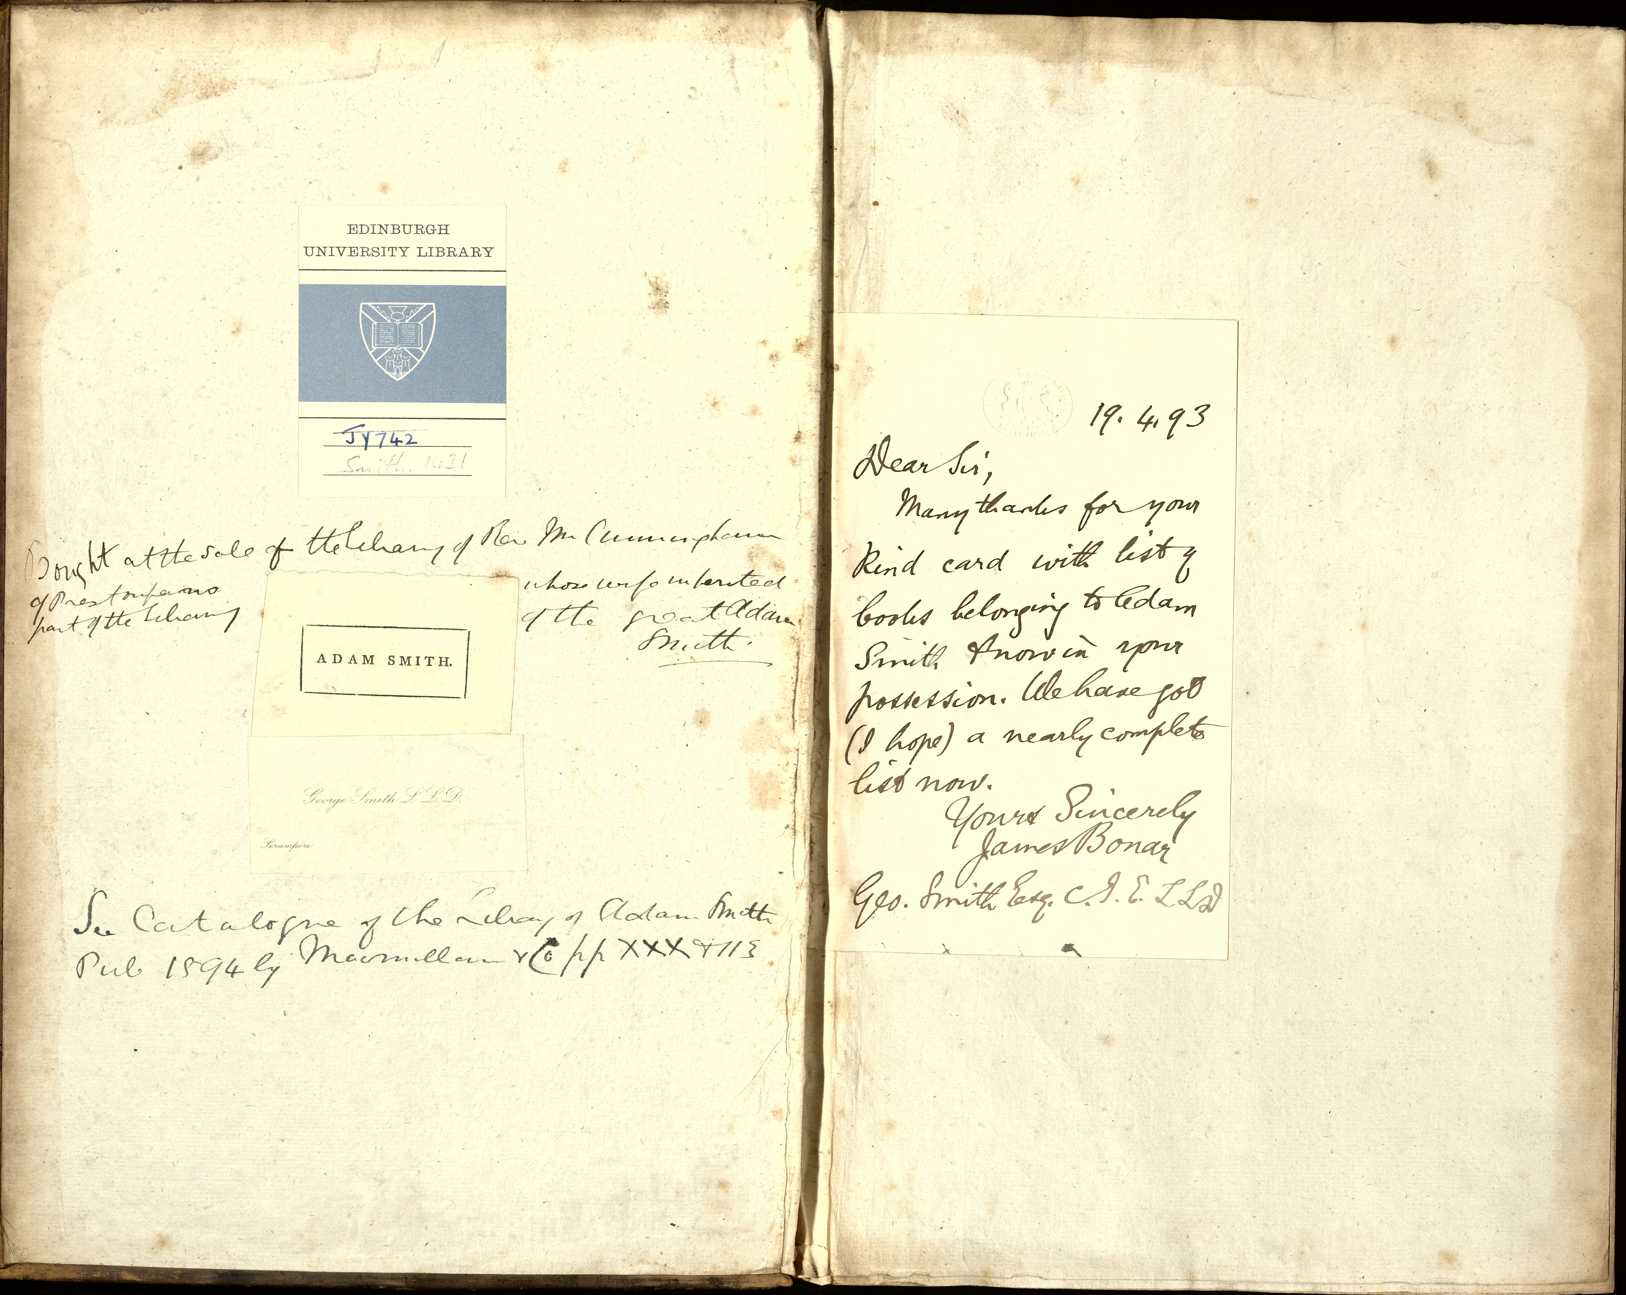 EDINBURGH
UNIVERSITY LIBRARY
JY742
Smith. 1431
Bought at the sale of the library of Rev Mr Cunningham
of Prestonpans whose wife inherited
part of the library of the great Adam
Smith.
ADAM SMITH.
George Smith L L D.
Serampore
See Catalogue of the Library of Adam Smith
Pub 1894 by Macmillan & Co pp XXX & 113
19. 4. 93
Dear Sir,
Many thanks for your
kind card with list of
books belonging to Adam
Smith & now in your
possession. We have got
(I hope) a nearly complete
list now.
Yours Sincerely
James Bonar
Geo. Smith Esq. C. I. E. L L D